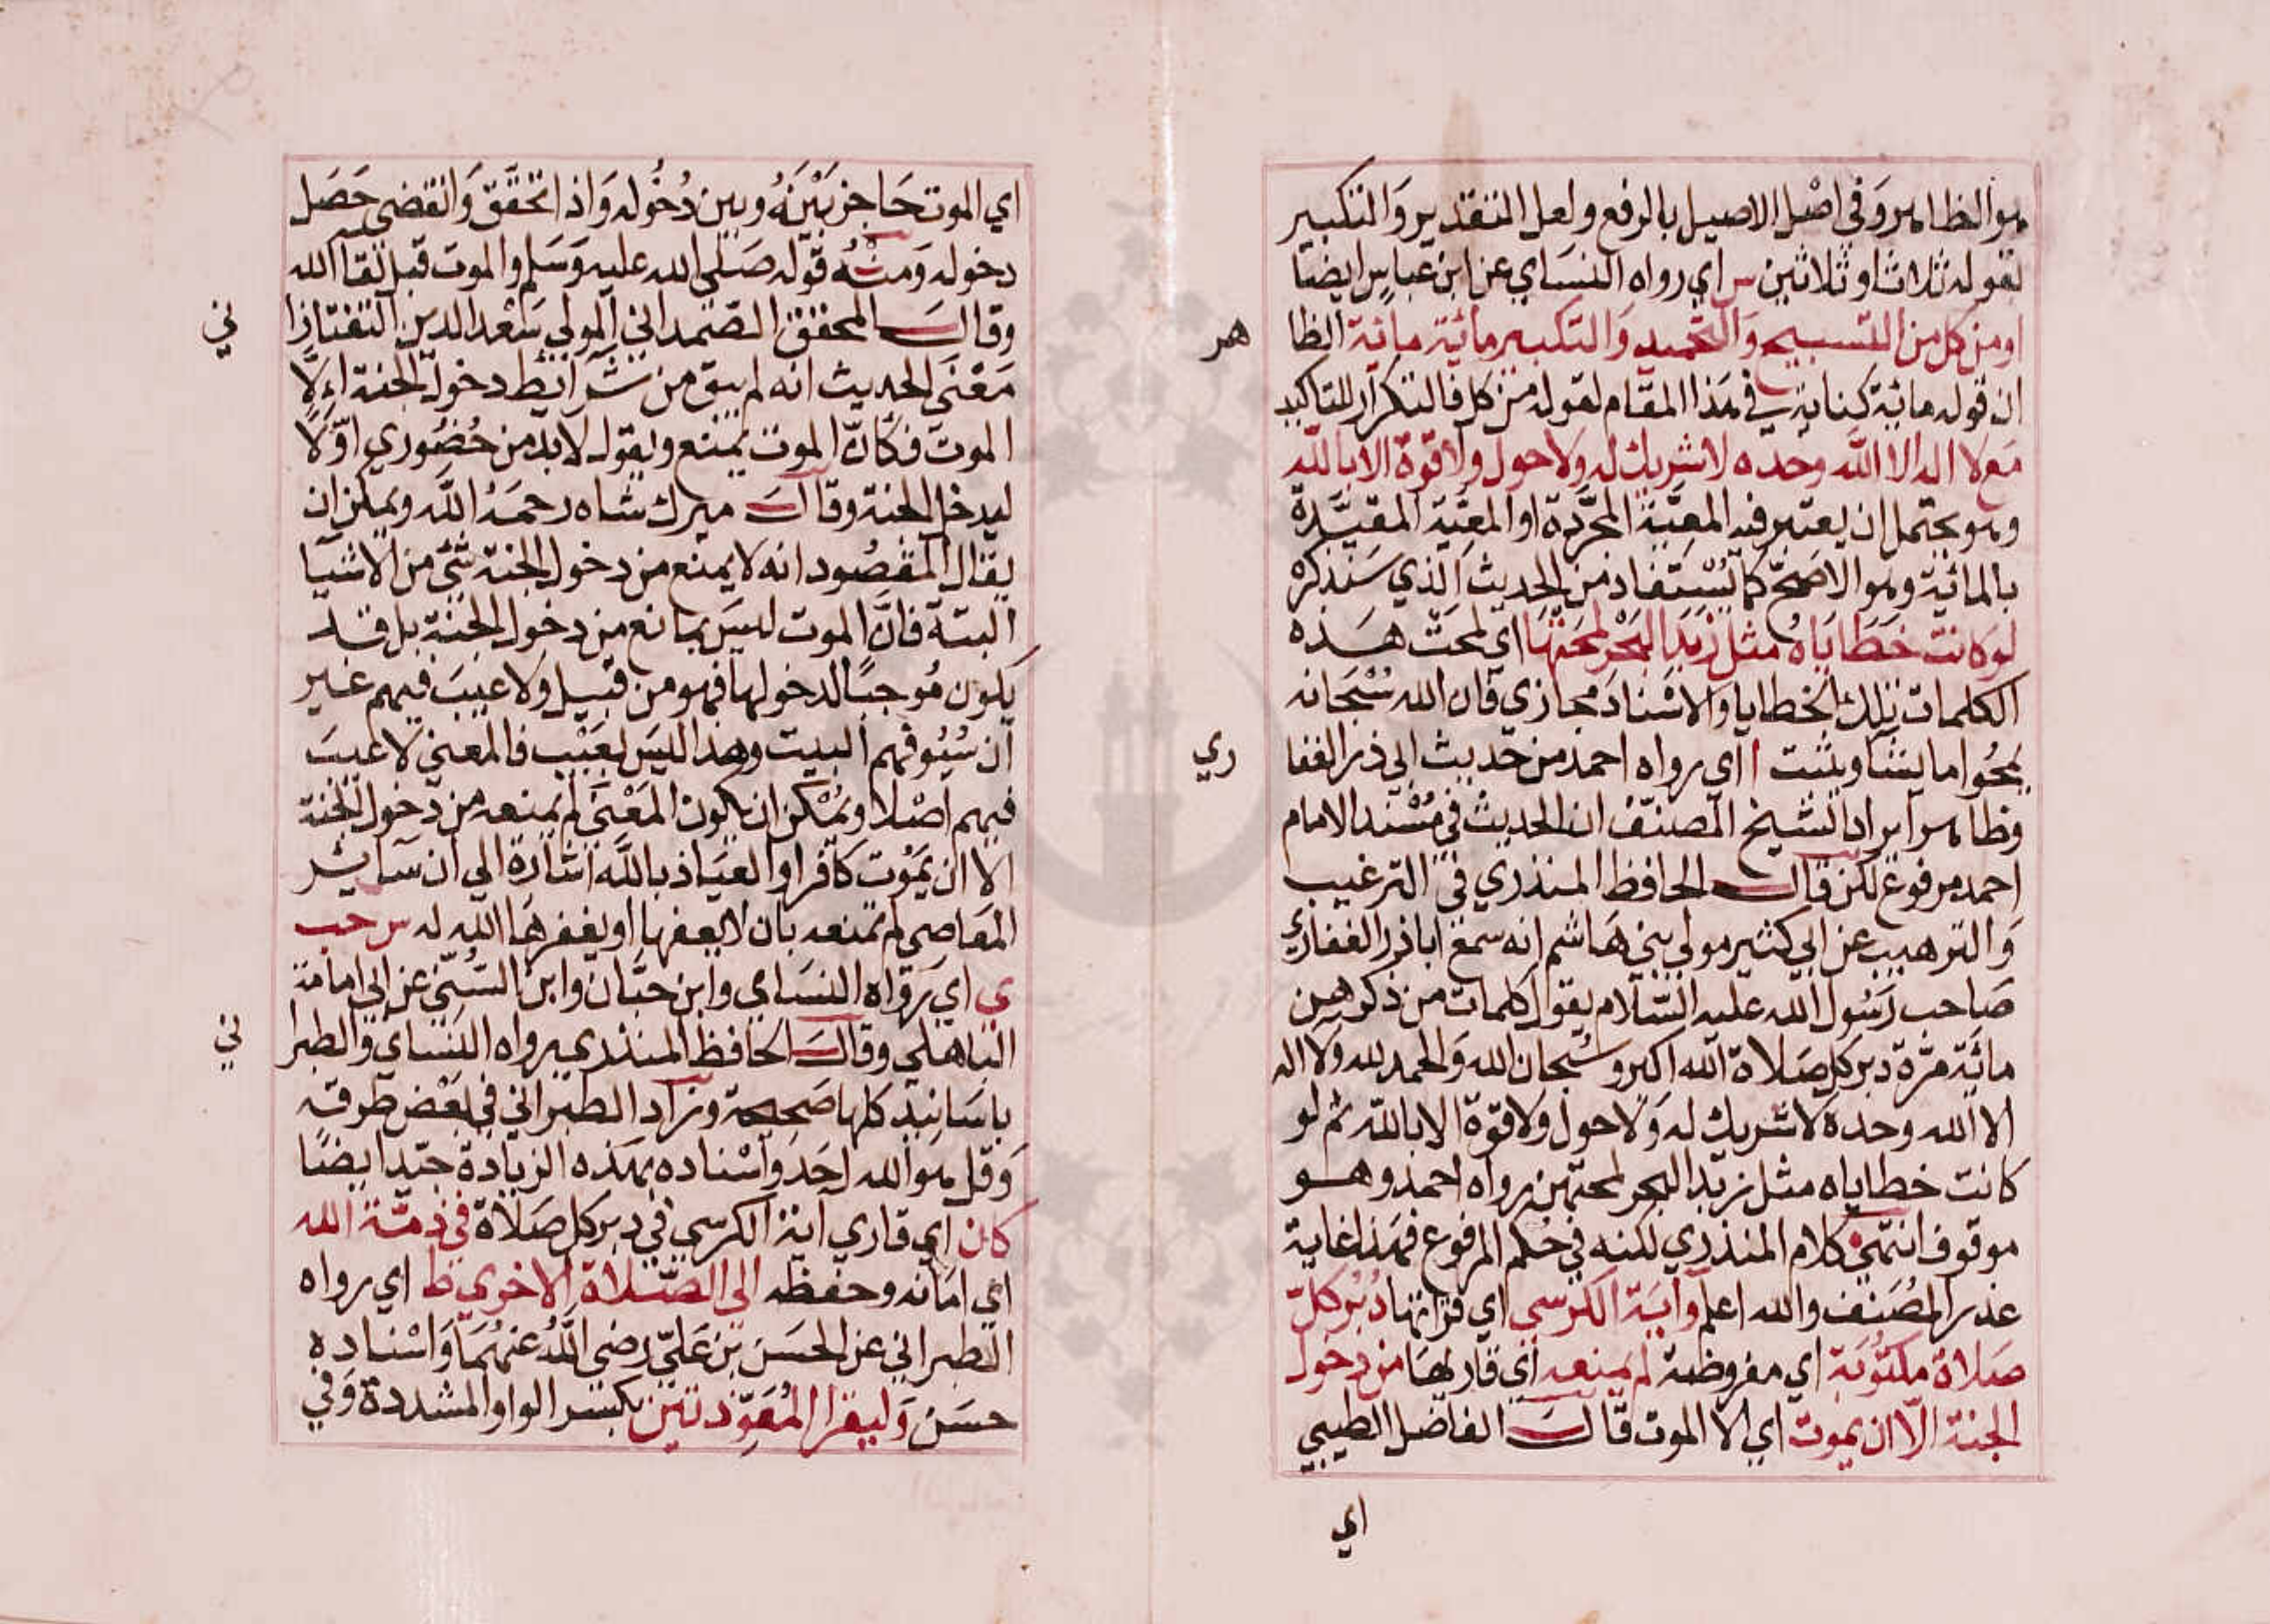 هوالظاهر وفي اصْل الاصيل بالرفع ولعل التقدير وَالتكبير
لقوله ثلاثا وثلاثين س اي رواه النسَاي عن ابن عباس ايضا
او من كل من التسبيح وَالتحميد وَالتكبير مائة مائة الظا
هر
ان قوله مائة كناية في هَذا المقام لقوله من كل فالتكرار للتاكيد
مَع لا اله الا الله وحده لا شريك له ولا حول ولا قوة الا بالله
وهو يحتمل ان يعتبر فيه المعيَّة المجرَّدة او المعيَّة المقيَّدة
بالمائية وهو الاصَحّ كما يُسْتفاد من الحديث الذي سَنذكرْه
لو كانت خَطَايَاهُ مثل زبدَ البَحْر لمحَتْهَا اي لمحت هذه
الكلمات تلك الخطايا والاسْنادَ مجازي قان الله سُبْحَانه
يمحُوا ما يشا ويثبت ا اي رواه احمد من حديث ابي ذر الغفا
ري
وظاهر ايراد الشيخ المصنّف ان الحديث في مُسْند الامام
احمد مرفوع لكن قال الحافظ المنذري في الترغيب
وَالترهيب عن ابي كثير مولى بني هَاشم انه سمع اباذر الغفاري
صَاحب رَسُول الله عليه السّلام يقول كلمات من ذكرهن
مائة مرّة دبر كل صَلاة الله اكبر وسُبحان الله وَالحمد لله ولا اله
الا الله وحده لا شريك له وَلا حول ولا قوة الا بالله ثم لو
كانت خطاياه مثل زبد البحر لمحتهن رواه احمد وهو
موقوف انتهى كلام المنذري لكنه في حُكم المرفوع فهَذا غاية
عذر المُصَنف والله اعلم وآيَة الكرسي اي قراتها دُبُر كلّ
صَلاة مكتُوبَة اي مفروضة لم يمنعه اي قاريهَا من دخول
الجنة الّا ان يموت اي الا الموت قال الفاضل الطيبي
اي
اي الموت حَاجز بَيْنَهُ وبين دُخُوله وَاذا تحقَّق وَانقضى حَصَل
دخوله وَمنْهُ قوله صَلى الله عليه وَسَلم والموت قبل لقا الله
وقال المحقق الصّمداني المولي سَعْد الدين التفتازا
ني
مَعْنى الحديث انه لم يبق من شَرائط دخول الجنة اِلَّا
الموت فكَانَّ الموت يمنع ويقول لا بد من حُضُوري اوّلًا
ليدخل الجنة وقال ميرك شاه رحمَهُ الله ويمكن ان
يقال المقصُود انه لا يمنع من دخول الجنة شي من الاشيا
البتة فانَّ الموت ليسَ بمانع من دخول الجنة بل قد
يكون مُوجبًا لدخولها فهو من قبيل ولا عيبَ فيهم غير
ان سُيُوفهم البيت وهذا ليسَ بعَيْب فالمعني لا عيبَ
فيهم اصْلا ويمُكن ان يكون المَعْنَى لم يمنعه من دخول الجنة
الا ان يَمُوت كافرا والعيَاذ بالله اشارة الي ان سَائر
المعَاصي لم تمنعه بان لا يعفها او يغفرهَا الله له س حب
ي اي رَوَاه النسَاي وابن حبَّان وابن السُنّي عن ابي امامة
الباهلي وقال الحافظ المنذري رواه النسَاي والطبرا
ني
باسَانيد كلها صَحيحة وزاد الطبراني في بعْض طرقه
وَقل هو الله احَد وَاسْناده بهَذه الزيادة جيّد ايضًا
كان اي قاري اية الكرسي في دبر كل صَلاة في ذمّة الله
اي امَانه وحفظه الي الصّلاة الاخري ط اي رواه
الطبراني عن الحسَن بن عَليّ رضي اللهُ عنهُمَا وَاسْناده
حسَن وَليقرا المُعَوِّذتين بكسْر الواو المشددة وَفي